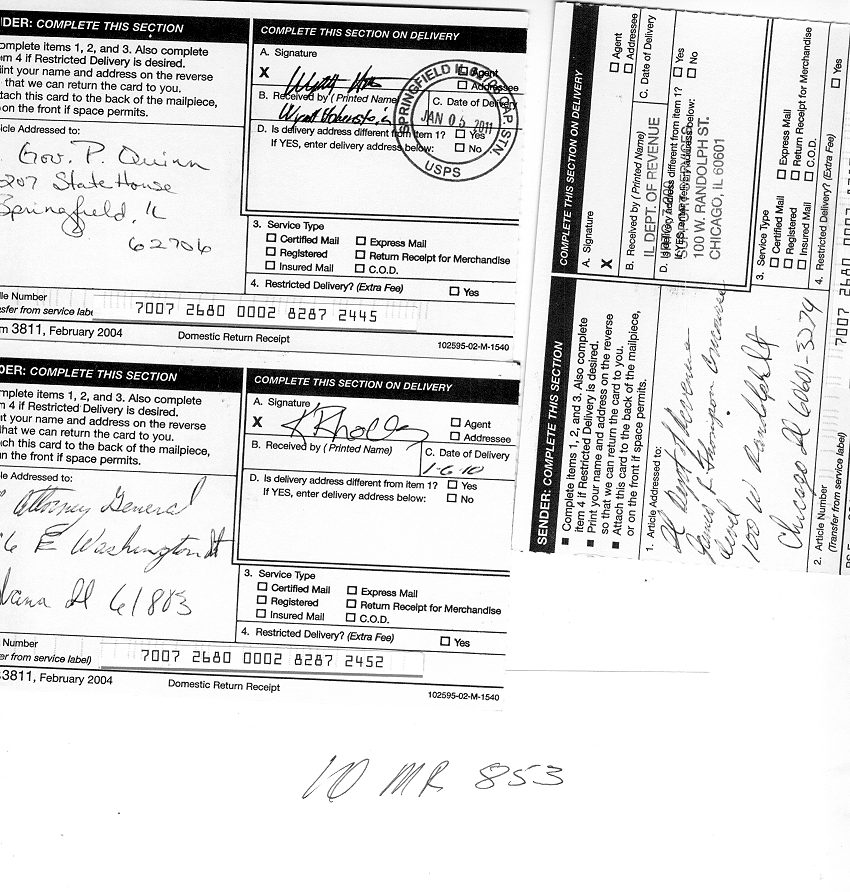 DER: COMPLETE THIS SECTION
omplete items 1, 2, and 3. Also complete
m 4 if Restricted Delivery is desired.
int your name and address on the reverse
that we can return the card to you.
tach this card to the back of the mailpiece,
on the front if space permits.
icle Addressed to:
Gov. P. Quinn
207 State House
Springfield, IL
62706
COMPLETE THIS SECTION ON DELIVERY
A. Signature
X
Agent
Addressee
B. Received by (Printed Name)
C. Date of Delivery
D. Is delivery address different from item 1? Yes
If YES, enter delivery address below: No
SPRINGFIELD IL CAP. STN.
JAN 05 2011
USPS
3. Service Type
Certified Mail Express Mail
Registered Return Receipt for Merchandise
Insured Mail C.O.D.
4. Restricted Delivery? (Extra Fee) Yes
le Number
nsfer from service labe
7007 2680 0002 8287 2445
m 3811, February 2004 Domestic Return Receipt 102595-02-M-1540
DER: COMPLETE THIS SECTION
mplete items 1, 2, and 3. Also complete
n 4 if Restricted Delivery is desired.
t your name and address on the reverse
hat we can return the card to you.
ch this card to the back of the mailpiece,
n the front if space permits.
le Addressed to:
Attorney General
6 E Washington St
bana Il 61803
COMPLETE THIS SECTION ON DELIVERY
A. Signature
X K Rhodes
Agent
Addressee
B. Received by (Printed Name)
C. Date of Delivery
1-6-10
D. Is delivery address different from item 1? Yes
If YES, enter delivery address below: No
3. Service Type
Certified Mail Express Mail
Registered Return Receipt for Merchandise
Insured Mail C.O.D.
4. Restricted Delivery? (Extra Fee) Yes
Number
er from service label)
7007 2680 0002 8287 2452
3811, February 2004 Domestic Return Receipt 102595-02-M-1540
SENDER: COMPLETE THIS SECTION
Complete items 1, 2, and 3. Also complete
item 4 if Restricted Delivery is desired.
Print your name and address on the reverse
so that we can return the card to you.
Attach this card to the back of the mailpiece,
or on the front if space permits.
1. Article Addressed to:
Il Dept of Revenue
James R Thompson
level
100 W Randolph St
Chicago Il 60601-3274
2. Article Number
(Transfer from service label)
7007 2680
COMPLETE THIS SECTION ON DELIVERY
A. Signature
X
Agent
Addressee
B. Received by (Printed Name)
C. Date of Delivery
IL DEPT. OF REVENUE
D. Is delivery address different from item 1? Yes
If YES, enter delivery address below: No
SUPPORT SERVICES
100 W. RANDOLPH ST.
CHICAGO, IL 60601
3. Service Type
Certified Mail Express Mail
Registered Return Receipt for Merchandise
Insured Mail C.O.D.
4. Restricted Delivery? (Extra Fee) Yes
10 MR 853